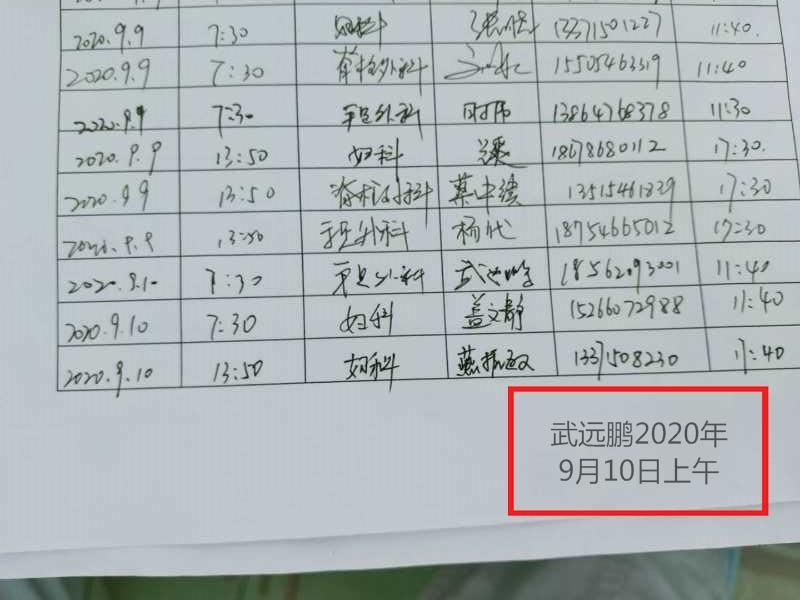 2020.9.9 7:30 妇科 13371501227 11:40.
2020.9.9 7:30 脊柱外科 15505463319 11:40
2020.9.9 7:30 手足外科 时伟 13864768378 11:30
2020.9.9 13:50 妇科 18678680112 17:30.
2020.9.9 13:50 脊柱外科 13515461839 17:30
2020.9.9 13:50 手足外科 杨代 18754665012 17:30
2020.9.10 7:30 手足外科 武远鹏 18562093001 11:40
2020.9.10 7:30 妇科 盖文静 15266072988 11:40
2020.9.10 13:50 妇科 1331508230 17:40
武远鹏2020年
9月10日上午